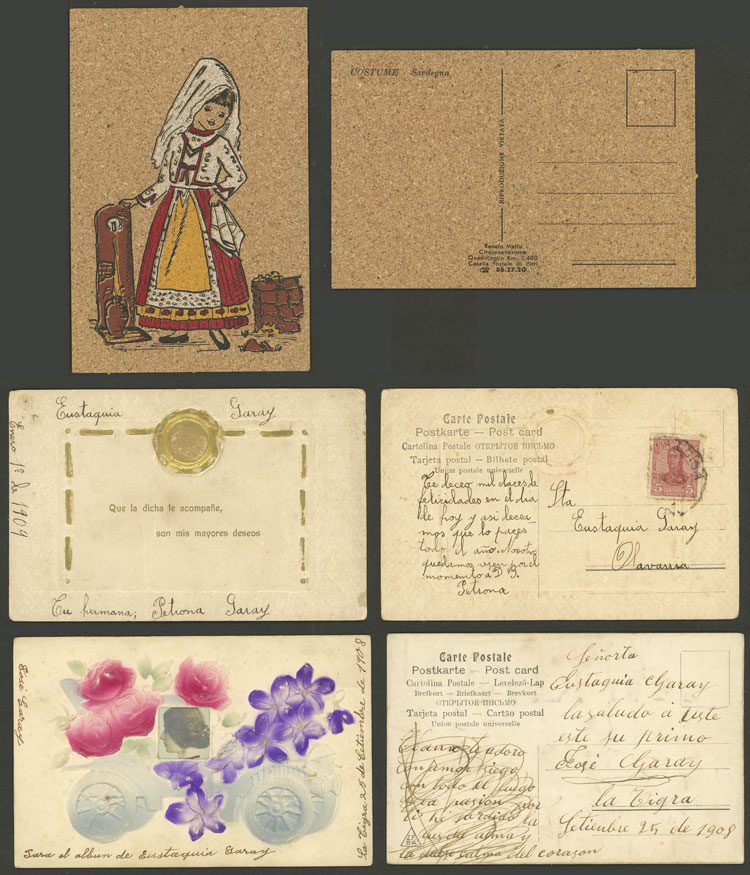 COSTUME - Sardegna
RIPRODUZIONE VIETATA
Renato Matta
Circonvallazione
Quadrifoglio Km. 2,400
Casella Postale di Pirri
☎ 86.27.20
Eustaquia Garay
Enero 1º de 1909
Que la dicha te acompañe,
son mis mayores deseos
Tu hermana; Petrona Garay
Carte Postale
Postkarte — Post card
Cartolina Postale ОТКРЫТОЕ ПИСЬМО
Tarjeta postal — Bilhete postal
Union postale universelle
Te deceo mil daces de
felicidades en el dia
de hoy y asi decea-
mos que lo paces
todo el año. Nosotr
quedamos vien por el
momento a D G.
Petrona
Sta
Eustaquia Garay
Olavarria
5
José Garay
La Tigra 25 de Setiembre de 1908
Para el album de Eustaquia Garay
Carte Postale
Postkarte — Post card
Cartolina Postale — Levelező-Lap
Brefkort — Briefkaart — Brevkort
ОТКРЫТОЕ ПИСЬМО
Tarjeta postal — Cartão postal
Union postale universelle
con amor ciego
con todo el fuego
de la pasion por
ti he perdido la
luz del alma y
la dulce calma del corazon
Señorta
Eustaquia Garay
la saludo á uste
este su primo
José Garay
la Tigra
Setiembre 25 de 1908